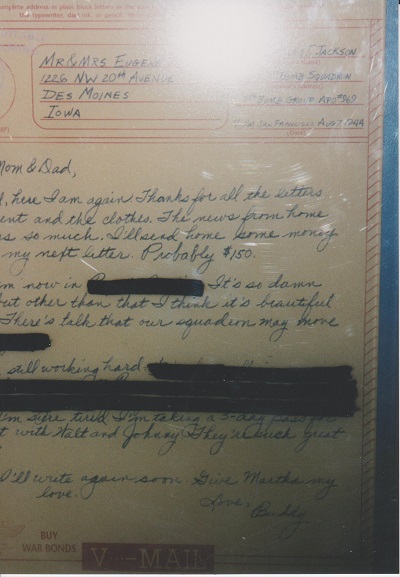 complete address in plain block letters in the
typewriter, dark ink, or pencil.
MR & MRS EUGENE
1226 NW 20TH AVENUE
DES MOINES
IOWA
JACKSON
BOMB SQUADRON
BOMB GROUP APO #969
SAN FRANCISCO AUG 7, 1944
Mom & Dad,
, here I am again. Thanks for all the letters
sent and the clothes. The news from home
so much. I'll send home some money
my next letter. Probably $150.
I'm now in It's so damn
but other than that I think it's beautiful
There's talk that our squadron may move
still working hard
I'm sure tired. I'm taking a 3-day pass
with Walt and Johnny. They're such great
I'll write again soon. Give Martha my
love.
Love,
Buddy
BUY
WAR BONDS
V···—MAIL